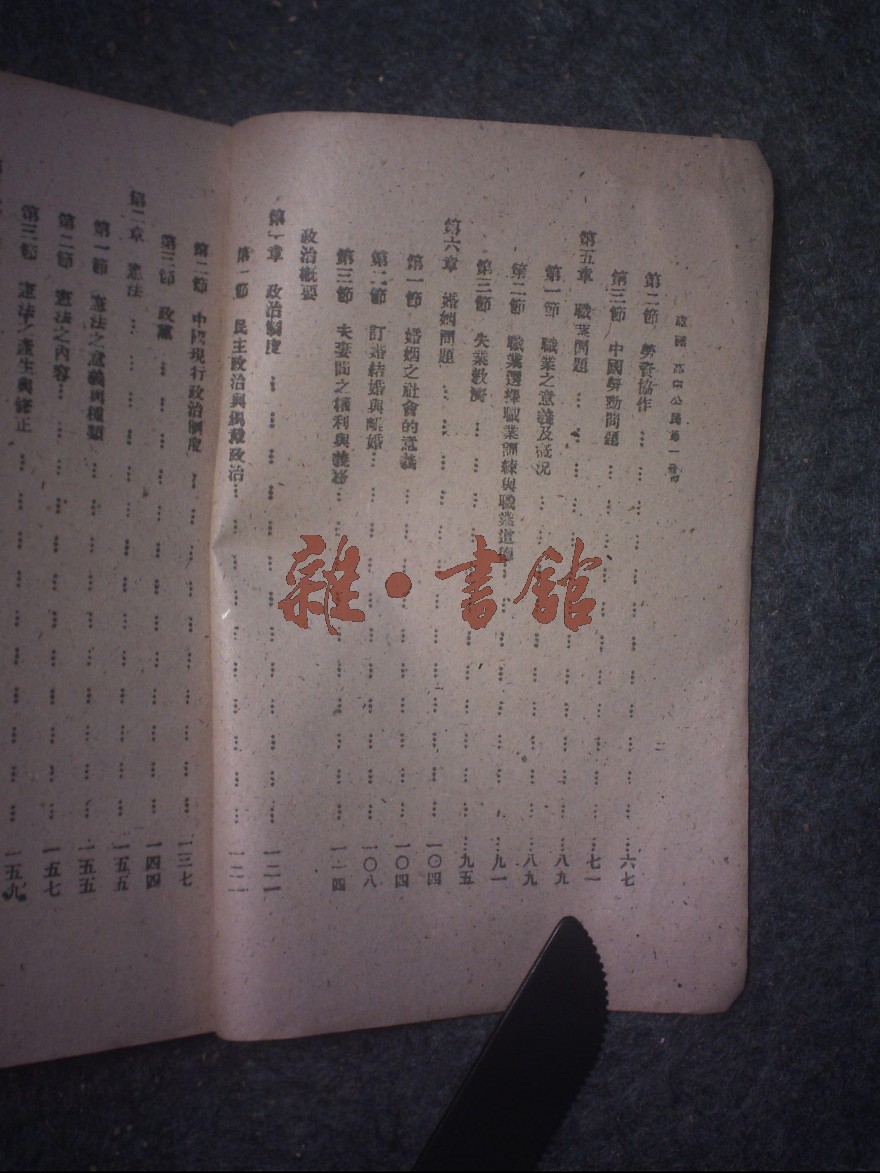 高中公民第一冊
二
第二節 勞資協作 … … … … … … … … … … 六七
第三節 中國勞動問題 … … … … … … … … … 七一
第五章 職業問題 … … … … … … … … … … … 八九
第一節 職業之意義及概況 … … … … … … … … 八九
第二節 職業選擇職業訓練與職業道德 … … … … … 九一
第三節 失業救濟 … … … … … … … … … … … 九五
第六章 婚姻問題 … … … … … … … … … … … 一〇四
第一節 婚姻之社會的意義 … … … … … … … … 一〇四
第二節 訂婚結婚與離婚 … … … … … … … … … 一〇八
第三節 夫妻間之權利與義務 … … … … … … … 一一四
政治概要
第一章 政治制度 … … … … … … … … … … … 一二一
第一節 民主政治與獨裁政治 … … … … … … … 一二一
第二節 中國現行政治制度 … … … … … … … … 一三七
第三節 政黨 … … … … … … … … … … … … 一四四
第二章 憲法 … … … … … … … … … … … … 一五五
第一節 憲法之意義與種類 … … … … … … … … 一五五
第二節 憲法之內容 … … … … … … … … … … 一五七
第三節 憲法之產生與修正 … … … … … … … … 一五九
雜·書館